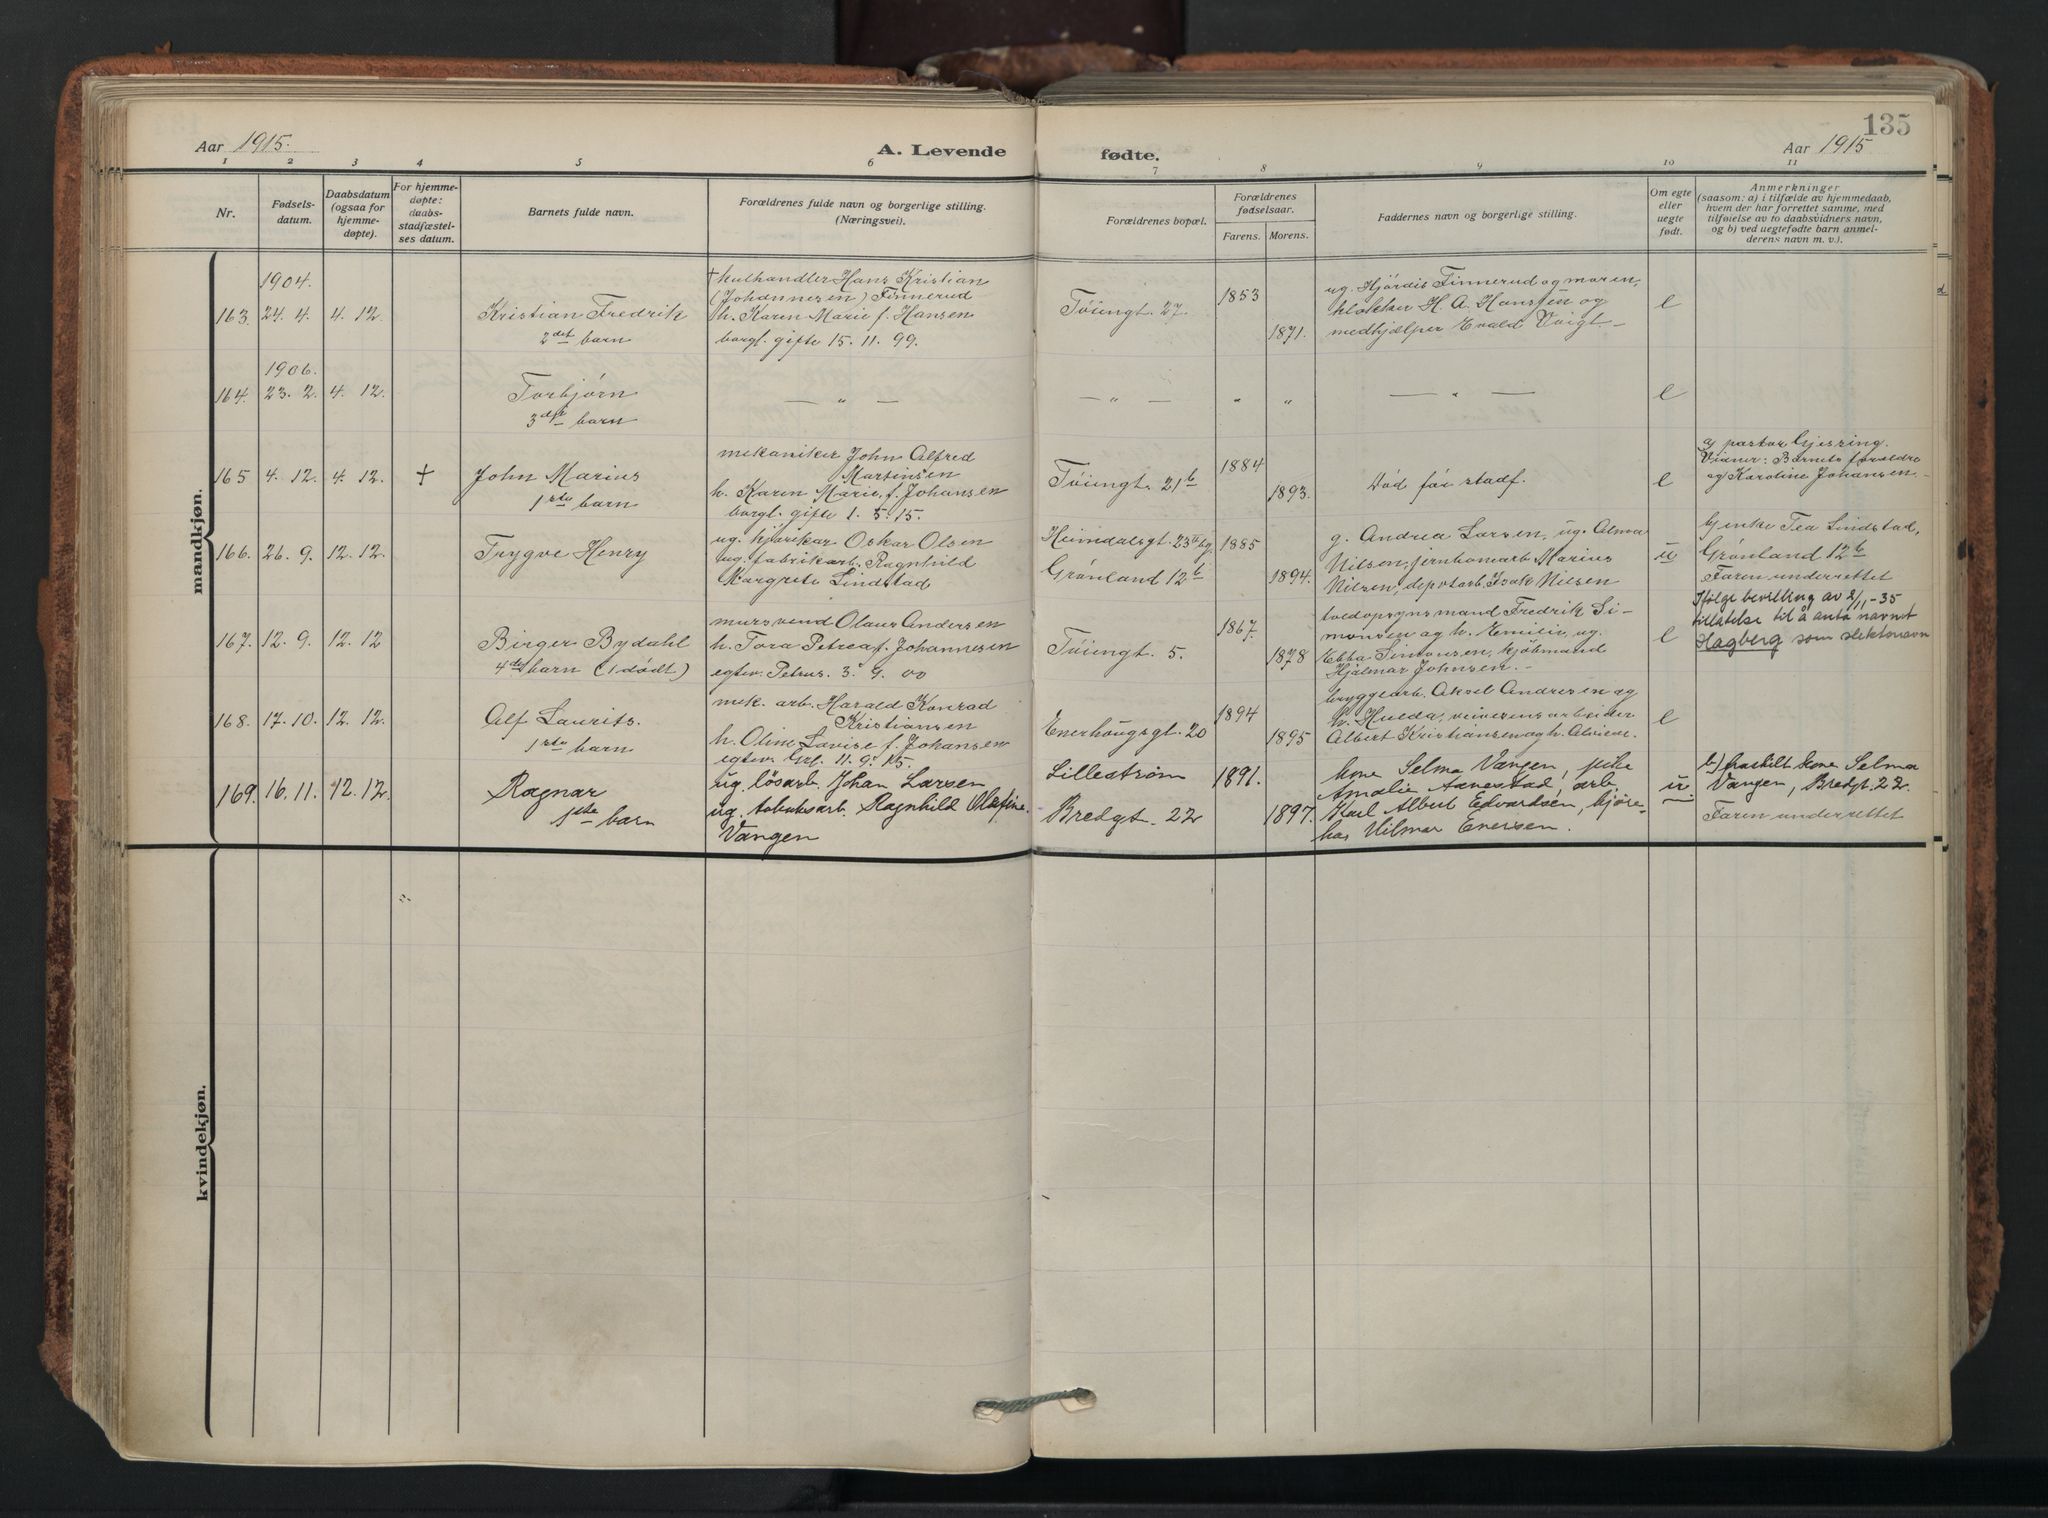 135
Aar 1915.
A. Levende
fødte.
Aar 1915
1 2 3 4 5 6 7 8 9 10 11
Nr.
Fødsels-
datum.
Daabsdatum
(ogsaa for
hjemme-
døpte).
For hjemme-
døpte:
daabs-
stadfæstel-
ses datum.
Barnets fulde navn.
Forældrenes fulde navn og borgerlige stilling.
(Næringsvei).
Forældrenes bopæl.
Forældrenes
fødselsaar.
Farens. Morens.
Faddernes navn og borgerlige stilling.
Om egte
eller
uegte
født.
Anmerkninger
(saasom: a) i tilfælde av hjemmedaab,
hvem der har forrettet samme, med
tilføielse av to daabsvidners navn,
og b) ved uegtefødte barn anmel-
derens navn m. v.).
mandkjøn.
163.
1904.
24. 4.
4. 12.
Kristian Fredrik
2det barn
† kulhandler Hans Kristian
(Johannesen) Finnerud
h. Karen Marie f. Hansen
borgl. gifte 15. 11. 99.
Tøiengt. 27.
1853
1871.
ug. Hjørdis Finnerud og moren,
klokker H. A. Hanssen og
medhjælper Evald Voigt
e
164.
1906.
23. 2.
4. 12.
Torbjørn
3die barn
— „ —
— „ —
„
„
— „ —
e
165
4. 12.
4. 12.
†
John Marius
1ste barn
mekaniker John Alfred
Martinsen
h. Karen Marie f. Johansen
borgl. gifte 1. 5. 15.
Tøiengt. 21b
1884
1893.
Død før stadf.
e
a) pastor Gjessing.
Vidner: Barnets forældre
og Karoline Johansen
166.
26. 9.
12. 12.
Trygve Henry
ug. kjørekar Oskar Olsen
ug. fabrikarb. Ragnhild
Margrete Lindstad
Heimdalsgt. 23 II bg.
Grønland 12b
1885
1894.
g. Andrea Larsen, ug. Alma
Nilsen, jernbanearb. Marius
Nilsen, depotarb. Isak Nilsen
u
b) enke Tea Lindstad,
Grønland 12b
Faren underrettet
167.
12. 9.
12. 12
Birger Bydahl
4de barn (1 dødt)
mursvend Olaus Andersen
h. Tora Petrea f. Johannesen
egtev. Petrus. 3. 9. 00
Tøiengt. 5.
1867.
1878
toldopsynsmand Fredrik Si-
monsen og h. Emilie, ug.
Ebba Simonsen, kjøbmand
Hjalmar Johnsen.
e
Ifølge bevilling av 2/11-35
tillatelse til å anta navnet
Hagberg som slektsnavn
168.
17. 10.
12. 12.
Alf Laurits.
1ste barn
mek. arb. Harald Konrad
Kristiansen
h. Oline Lovise f. Johansen
egtev. Grl. 11. 9. 15.
Enerhougsgt. 20
1894
1895
bryggearb. Aksel Andresen og
h. Hulda, visergutarbeider
Albert Kristiansen og h. Alviede.
e
169.
16. 11.
12. 12.
Ragnar
1ste barn
ug. løsarb. Johan Larsen
ug. tobaksarb. Ragnhild Olefine
Vangen
Lillestrøm
Bredgt. 22
1891.
1897.
kone Selma Vangen, pike
Amalie Aanestad, arb.
Karl Albert Edvardsen, kjøre-
kar Hilmar Enersen.
u
b) fraskilt kone Selma
Vangen, Bredgt. 22.
Faren underrettet
kvindekjøn.